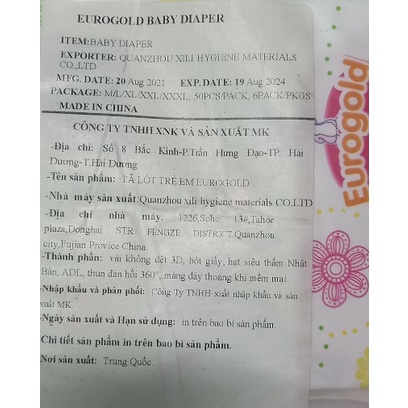 EUROGOLD BABY DIAPER
ITEM:BABY DIAPER
EXPORTER: QUANZHOU XILI HYGIENE MATERIALS
CO.,LTD
MFG. DATE: 20 Aug 2021 EXP. DATE: 19 Aug 2024
PACKAGE: M/L/XL/XXL/XXXL, 50PCS/PACK, 6PACK/PKGS
MADE IN CHINA
CÔNG TY TNHH XNK VÀ SẢN XUẤT MK
-Địa chỉ: Số 8 Bắc Kinh-P.Trần Hưng Đạo-TP. Hải
Dương-T.Hải Dương
-Tên sản phẩm: TÃ LÓT TRẺ EM EUROGOLD
-Nhà máy sản xuất:Quanzhou xili hygiene materials CO.LTD
-Địa chỉ nhà máy: 1226,Soho 13#,Tahoe
plaza,Donghai STR FENGZE DISTRICT.Quanzhou
city,Fujian Provice China.
-Thành phần: vải không dệt 3D, bột giấy, hạt siêu thấm Nhật
Bản, ADL, thun đàn hồi 360°, màng đáy thoáng khí mềm mại.
-Nhập khẩu và phân phối: Công Ty TNHH xuất nhập khẩu và sản
xuất MK.
-Ngày sản xuất và Hạn sử dụng: in trên bao bì sản phẩm.
Chi tiết sản phẩm in trên bao bì sản phẩm.
Nơi sản xuất: Trung Quốc.
Eurogold
Eurogold